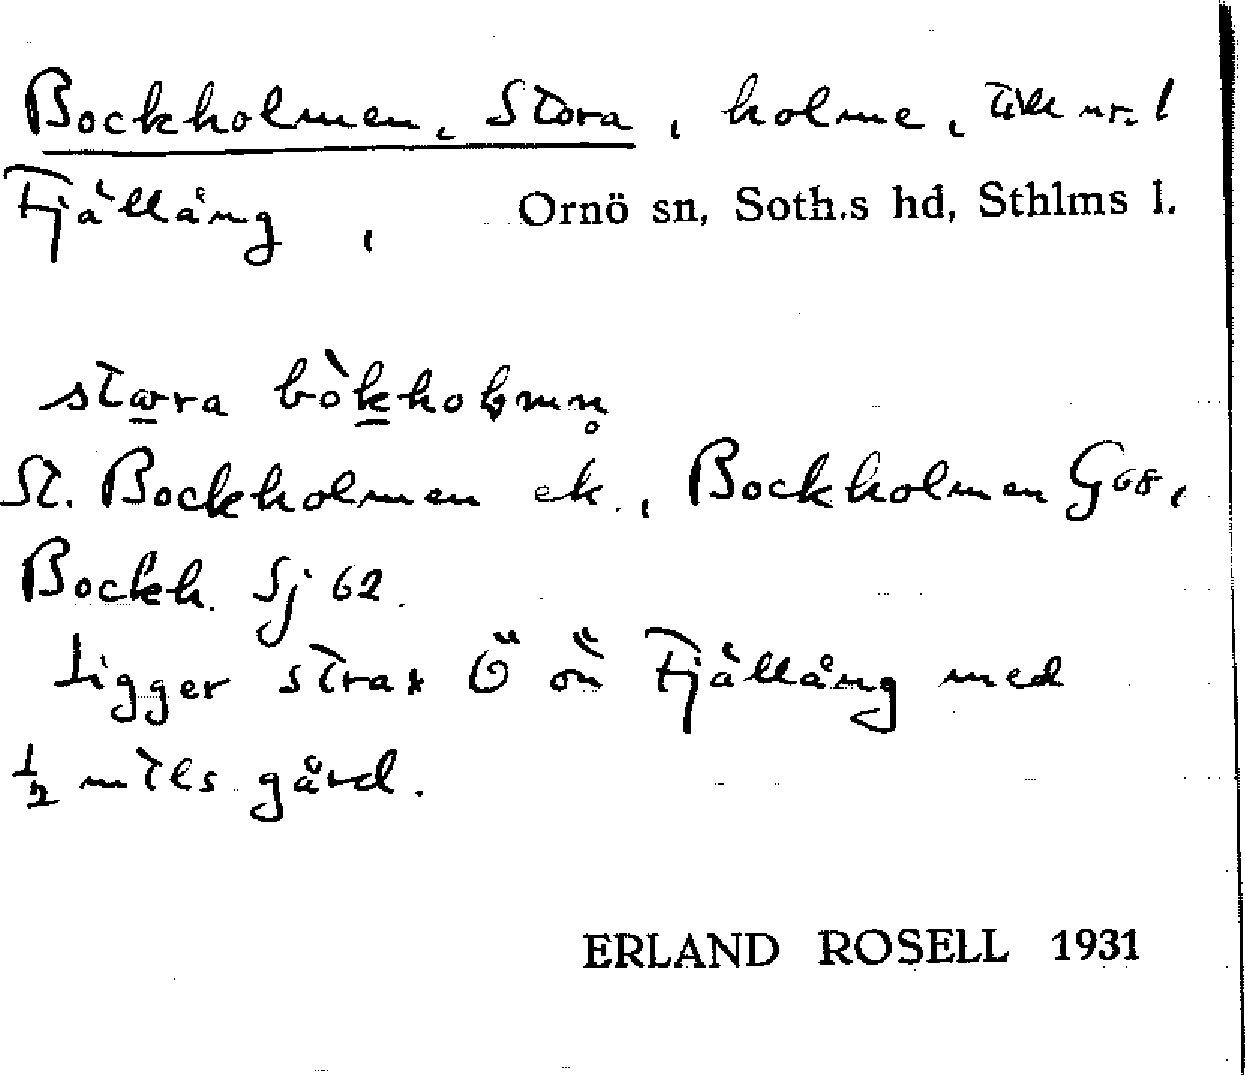 Bockholmen, Stora, holme, till nr. 1
Fjällång, Ornö sn, Soth.s hd, Sthlms l.
stɷra bòkhołmn̥
St. Bockholmen ek., Bockholmen G68,
Bockh. Sj 62.
Ligger strax Ö om Fjällång med
½ mils gård.
ERLAND ROSELL 1931